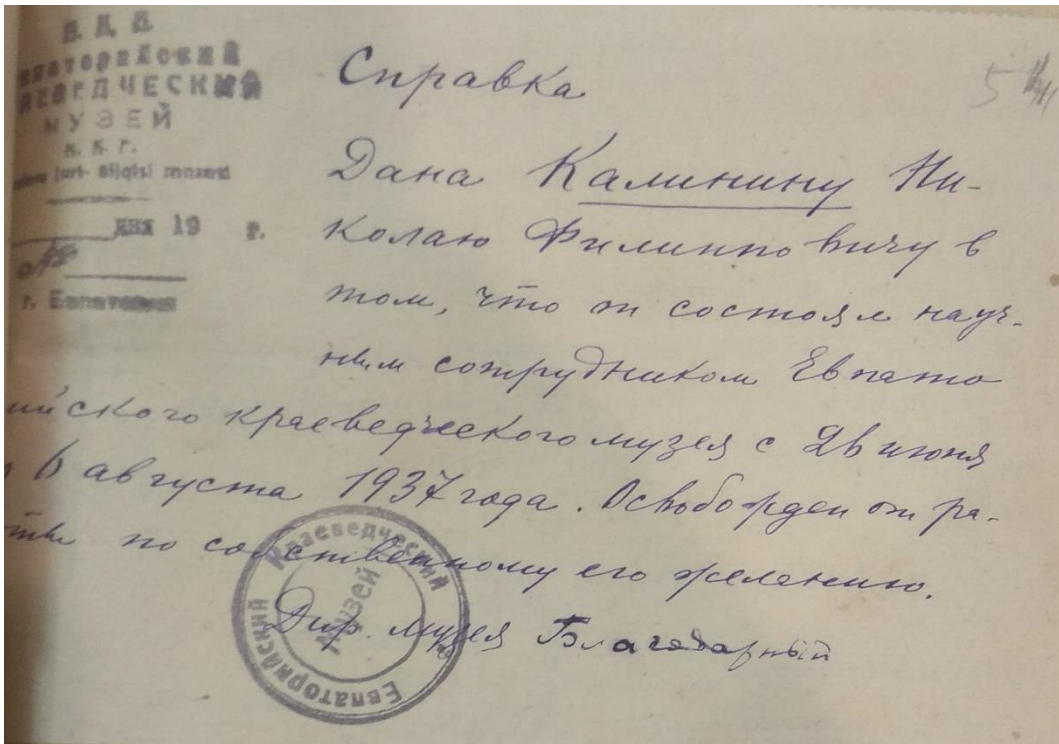 Н. К. П.
Евпаторийский
КРАЕВЕДЧЕСКИЙ
МУЗЕЙ
N. K. P.
jurt- bilgisi muzeisi
дня 19 г.
№
г. Евпатория
5
Справка
Дана Калинину Ни-
колаю Филипповичу в
том, что он состоял науч-
ным сотрудником Евпато
ийского краеведческого музея с 26 июня
6 августа 1937 года. Освобожден от ра-
по собственному его желению.
Дир. музея Благодарный
Евпаторийский Краеведческий
Музей